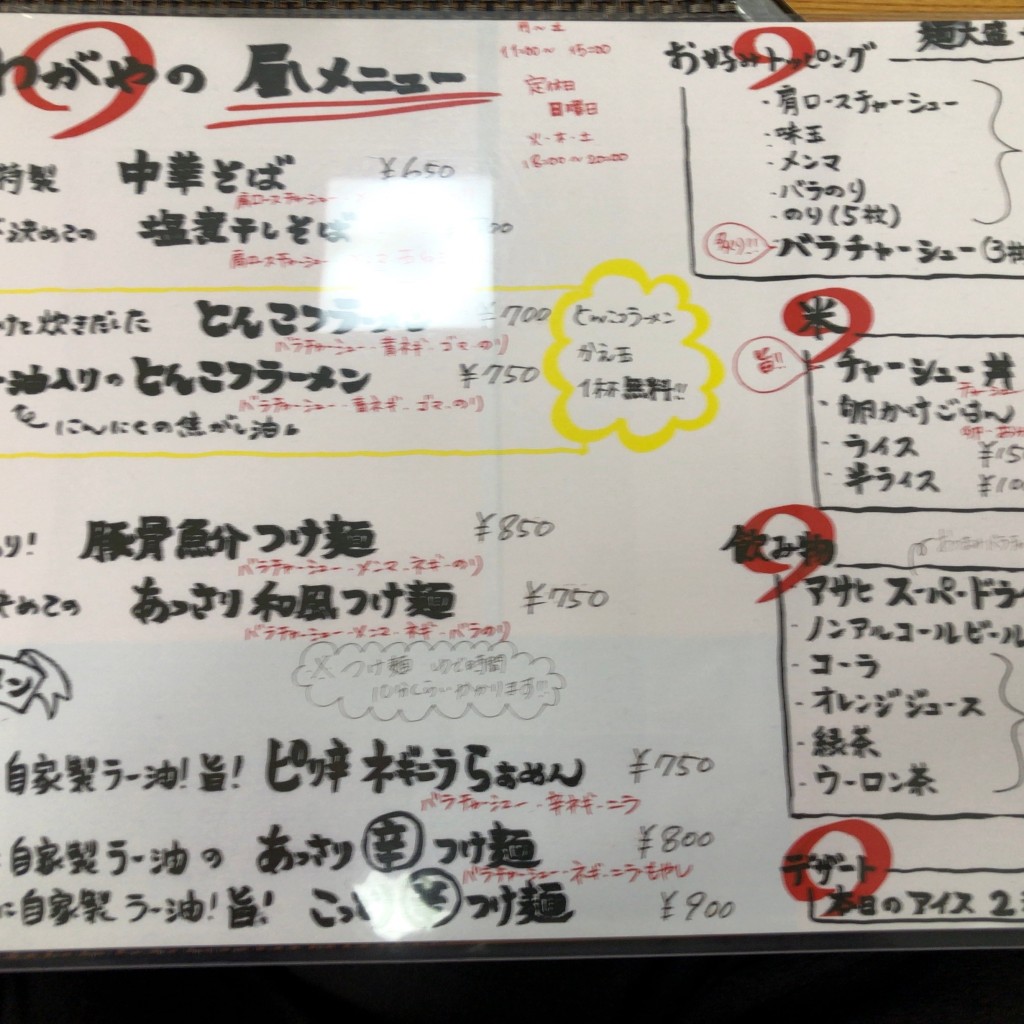 わがやの 昼メニュー
月～土
11:00～15:00
定休日
日曜日
火・木・土
18:00～20:00
特製 中華そば ¥650
肩ロースチャーシュー
決めての 塩煮干しそば
肩ロースチャーシュー
炊きだした とんこつラーメン ¥700
バラチャーシュー・青ネギ・ゴマ・のり
油入りの とんこつラーメン ¥750
バラチャーシュー・青ネギ・ゴマ・のり
にんにくの焦がし油
とんこつラーメン
かえ玉
1杯無料!!
豚骨魚介つけ麺 ¥850
バラチャーシュー・メンマ・ネギ・のり
決めての あっさり和風つけ麺 ¥750
バラチャーシュー・メンマ・ネギ・バラのり
※つけ麺 ゆで時間
10分くらいかかります!!
自家製ラー油!旨! ピリ辛 ネギニラらぁめん ¥750
バラチャーシュー・辛ネギ・ニラ
自家製ラー油の あっさり辛つけ麺 ¥800
バラチャーシュー・ネギ・ニラもやし
自家製ラー油!旨! つけ麺 ¥900
麺大盛
お好みトッピング
・肩ロースチャーシュー
・味玉
・メンマ
・バラのり
・のり(5枚)
バラチャーシュー(3枚
米
旨!!
チャーシュー丼
・卵かけごはん
・ライス ¥15
・半ライス ¥10
飲み物
・アサヒ スーパードラ
・ノンアルコールビール
・コーラ
・オレンジジュース
・緑茶
・ウーロン茶
デザート
本日のアイス 2